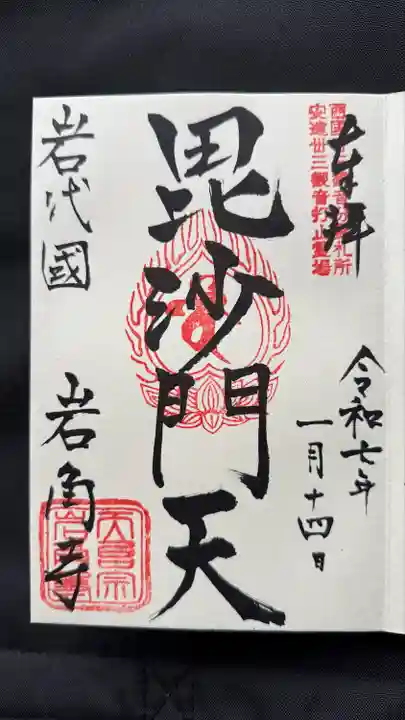 奉拝
安達卅三観音打止霊場
令和七年
一月十四日
毘沙門天
岩代國
岩角寺
天台宗
岩角寺